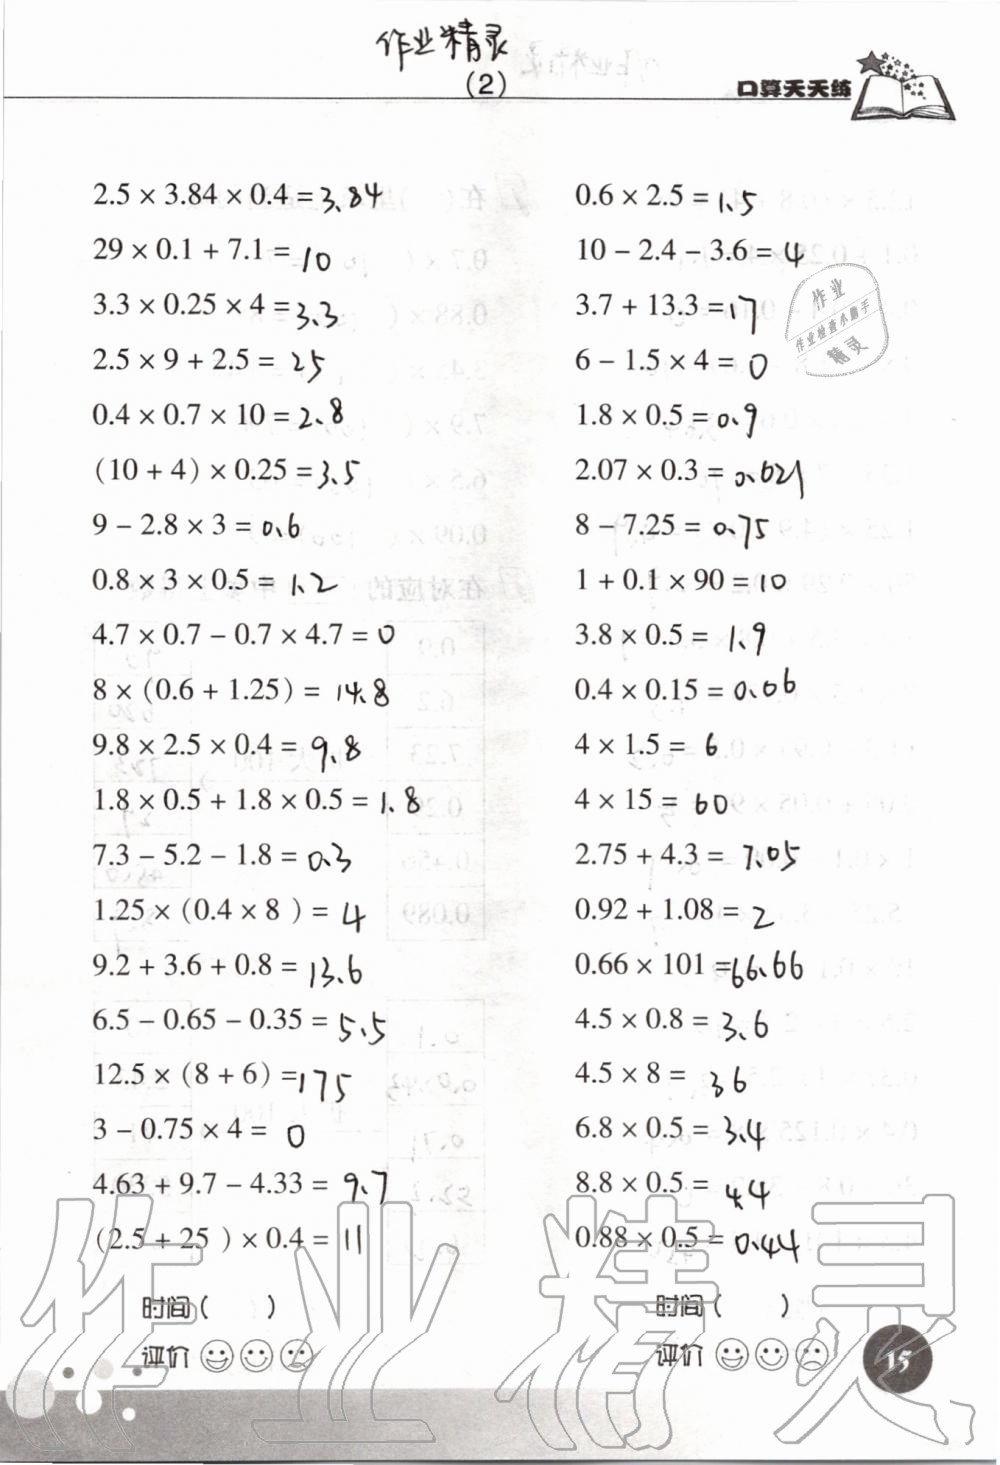 作业精灵
(2)
口算天天练
2.5 × 3.84 × 0.4 = 3.84
29 × 0.1 + 7.1 = 10
3.3 × 0.25 × 4 = 3.3
2.5 × 9 + 2.5 = 25
0.4 × 0.7 × 10 = 2.8
(10 + 4) × 0.25 = 3.5
9 - 2.8 × 3 = 0.6
0.8 × 3 × 0.5 = 1.2
4.7 × 0.7 - 0.7 × 4.7 = 0
8 × (0.6 + 1.25) = 14.8
9.8 × 2.5 × 0.4 = 9.8
1.8 × 0.5 + 1.8 × 0.5 = 1.8
7.3 - 5.2 - 1.8 = 0.3
1.25 × (0.4 × 8 ) = 4
9.2 + 3.6 + 0.8 = 13.6
6.5 - 0.65 - 0.35 = 5.5
12.5 × (8 + 6) = 175
3 - 0.75 × 4 = 0
4.63 + 9.7 - 4.33 = 9.7
(2.5 + 25 ) × 0.4 = 11
时间( )
评价
0.6 × 2.5 = 1.5
10 - 2.4 - 3.6 = 4
3.7 + 13.3 = 17
6 - 1.5 × 4 = 0
1.8 × 0.5 = 0.9
2.07 × 0.3 = 0.021
8 - 7.25 = 0.75
1 + 0.1 × 90 = 10
3.8 × 0.5 = 1.9
0.4 × 0.15 = 0.06
4 × 1.5 = 6
4 × 15 = 60
2.75 + 4.3 = 7.05
0.92 + 1.08 = 2
0.66 × 101 = 66.66
4.5 × 0.8 = 3.6
4.5 × 8 = 36
6.8 × 0.5 = 3.4
8.8 × 0.5 = 4.4
0.88 × 0.5 = 0.44
时间( )
评价
15
作业
作业检查小助手
精灵
作业精灵